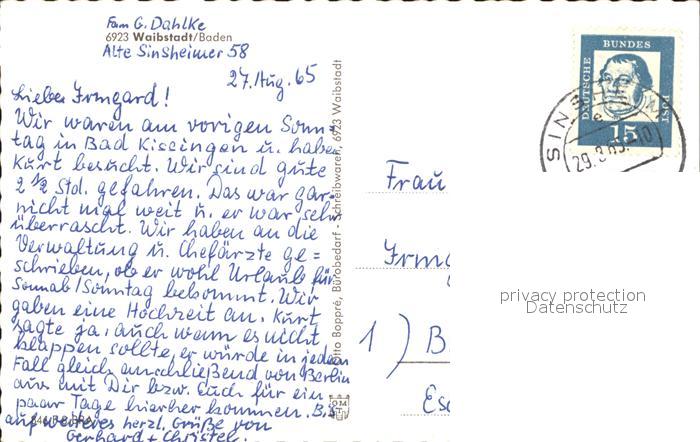 Fam G. Dahlke
6923 Waibstadt/Baden
Alte Sinsheimer 58
27. Aug. 65
Liebe Irmgard!
Wir waren am vorigen Sonn-
tag in Bad Kissingen u. haben
Kurt besucht. Wir sind gute
2 1/2 Std. gefahren. Das war gar
nicht mal weit u. er war sehr
überrascht. Wir haben an die
Verwaltung u. Chefärzte ge=
schrieben, ob er wohl Urlaub für
Sonnab/Sonntag bekommt. Wir
gaben eine Hochzeit an. Kurt
sagte ja, auch wenn es nicht
klappen sollte, er würde in jedem
Fall gleich anschließend von Berlin
aus mit Dir bzw. Euch für ein
paar Tage hierher kommen. Bis
auf weiteres herzl. Grüße von
Gerhard + Christel.
Otto Boppré, Bürobedarf - Schreibwaren, 6923 Waibstadt
DEUTSCHE BUNDES POST
15
SINSHEIM
29.8.65-10
Frau
Irmg
1) B
Es
privacy protection
Datenschutz